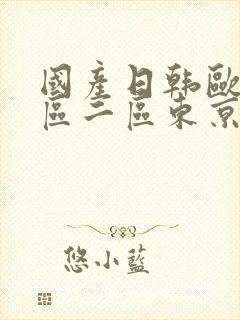 國產日韓歐
區二區東京
悠小藍